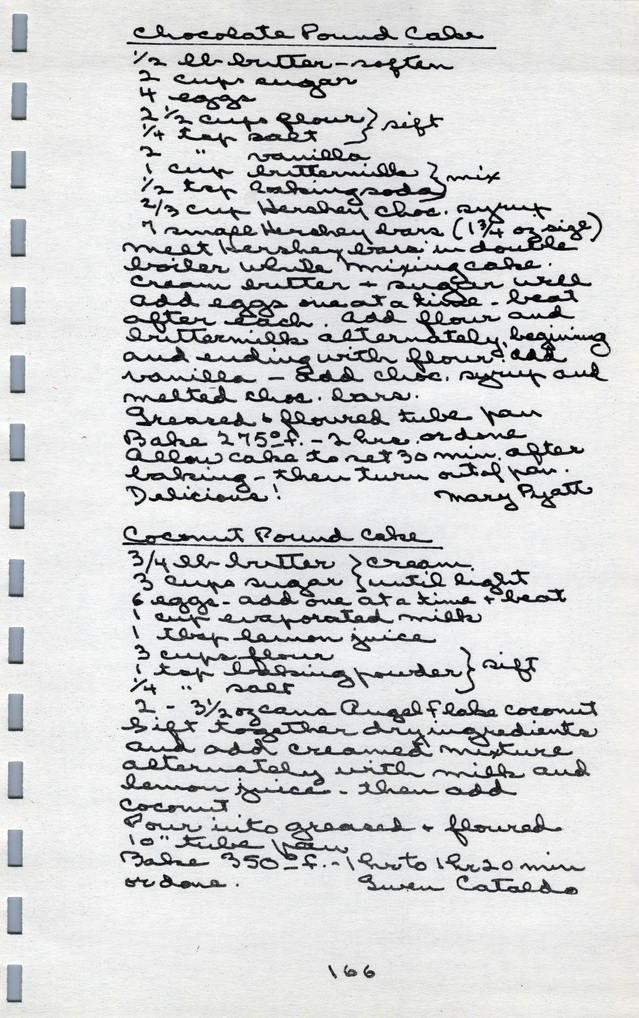 Chocolate Pound Cake
1/2 lb butter - soften
2 cups sugar
4 eggs
2 1/2 cups flour } sift
1/4 tsp salt
2 " vanilla
1 cup buttermilk } mix
1/2 tsp baking soda
2/3 cup Hershey choc. syrup
7 small Hershey bars (1 3/4 oz size)
melt Hershey bars in double
boiler while mixing cake.
Cream butter + sugar well
add eggs one at a time - beat
after each. Add flour and
buttermilk alternately, begining
and ending with flour. add
vanilla - add choc. syrup and
melted choc. bars.
Greased & floured tube pan
Bake 275° f. - 2 hrs. or done
Allow cake to set 30 min. after
baking - then turn out of pan.
Delicious! Mary Pyatt
Coconut Pound Cake
3/4 lb butter } cream
3 cups sugar } until light
6 eggs - add one at a time + beat
1 cup evaporated milk
1 tbsp lemon juice
3 cups flour
1 tsp baking powder } sift
1/4 " salt
2 - 3 1/2 oz cans Angel Flake coconut
Sift together dry ingredients
and add creamed mixture
alternately with milk and
lemon juice - then add
coconut
Pour into greased + floured
10" tube pan
Bake 350° f. - 1 hr to 1 hr 20 min
or done. Gwen Cataldo
166